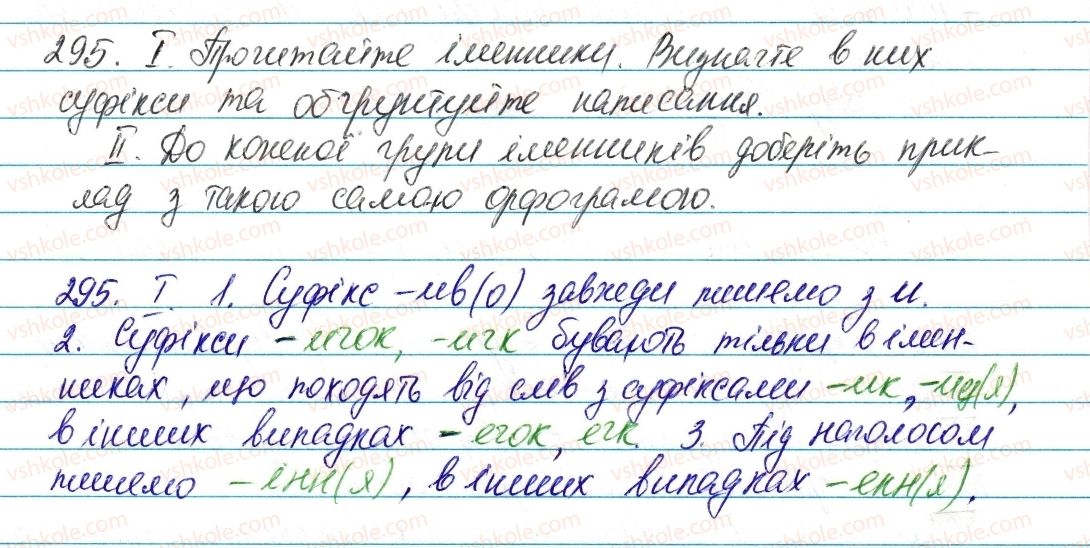 295. I. Прочитайте іменники. Визначте в них
суфікси та обґрунтуйте написання.
II. До кожної групи іменників доберіть прик-
лад з такою самою орфограмою.
295. I. 1. Суфікс -ив(о) завжди пишемо з и.
2. Суфікси -ичок, -ичк бувають тільки в імен-
никах, що походять від слів з суфіксами -ик, -иц(я),
в інших випадках -ечок, ечк. 3. Під наголосом
пишемо -інн(я), в інших випадках -енн(я).